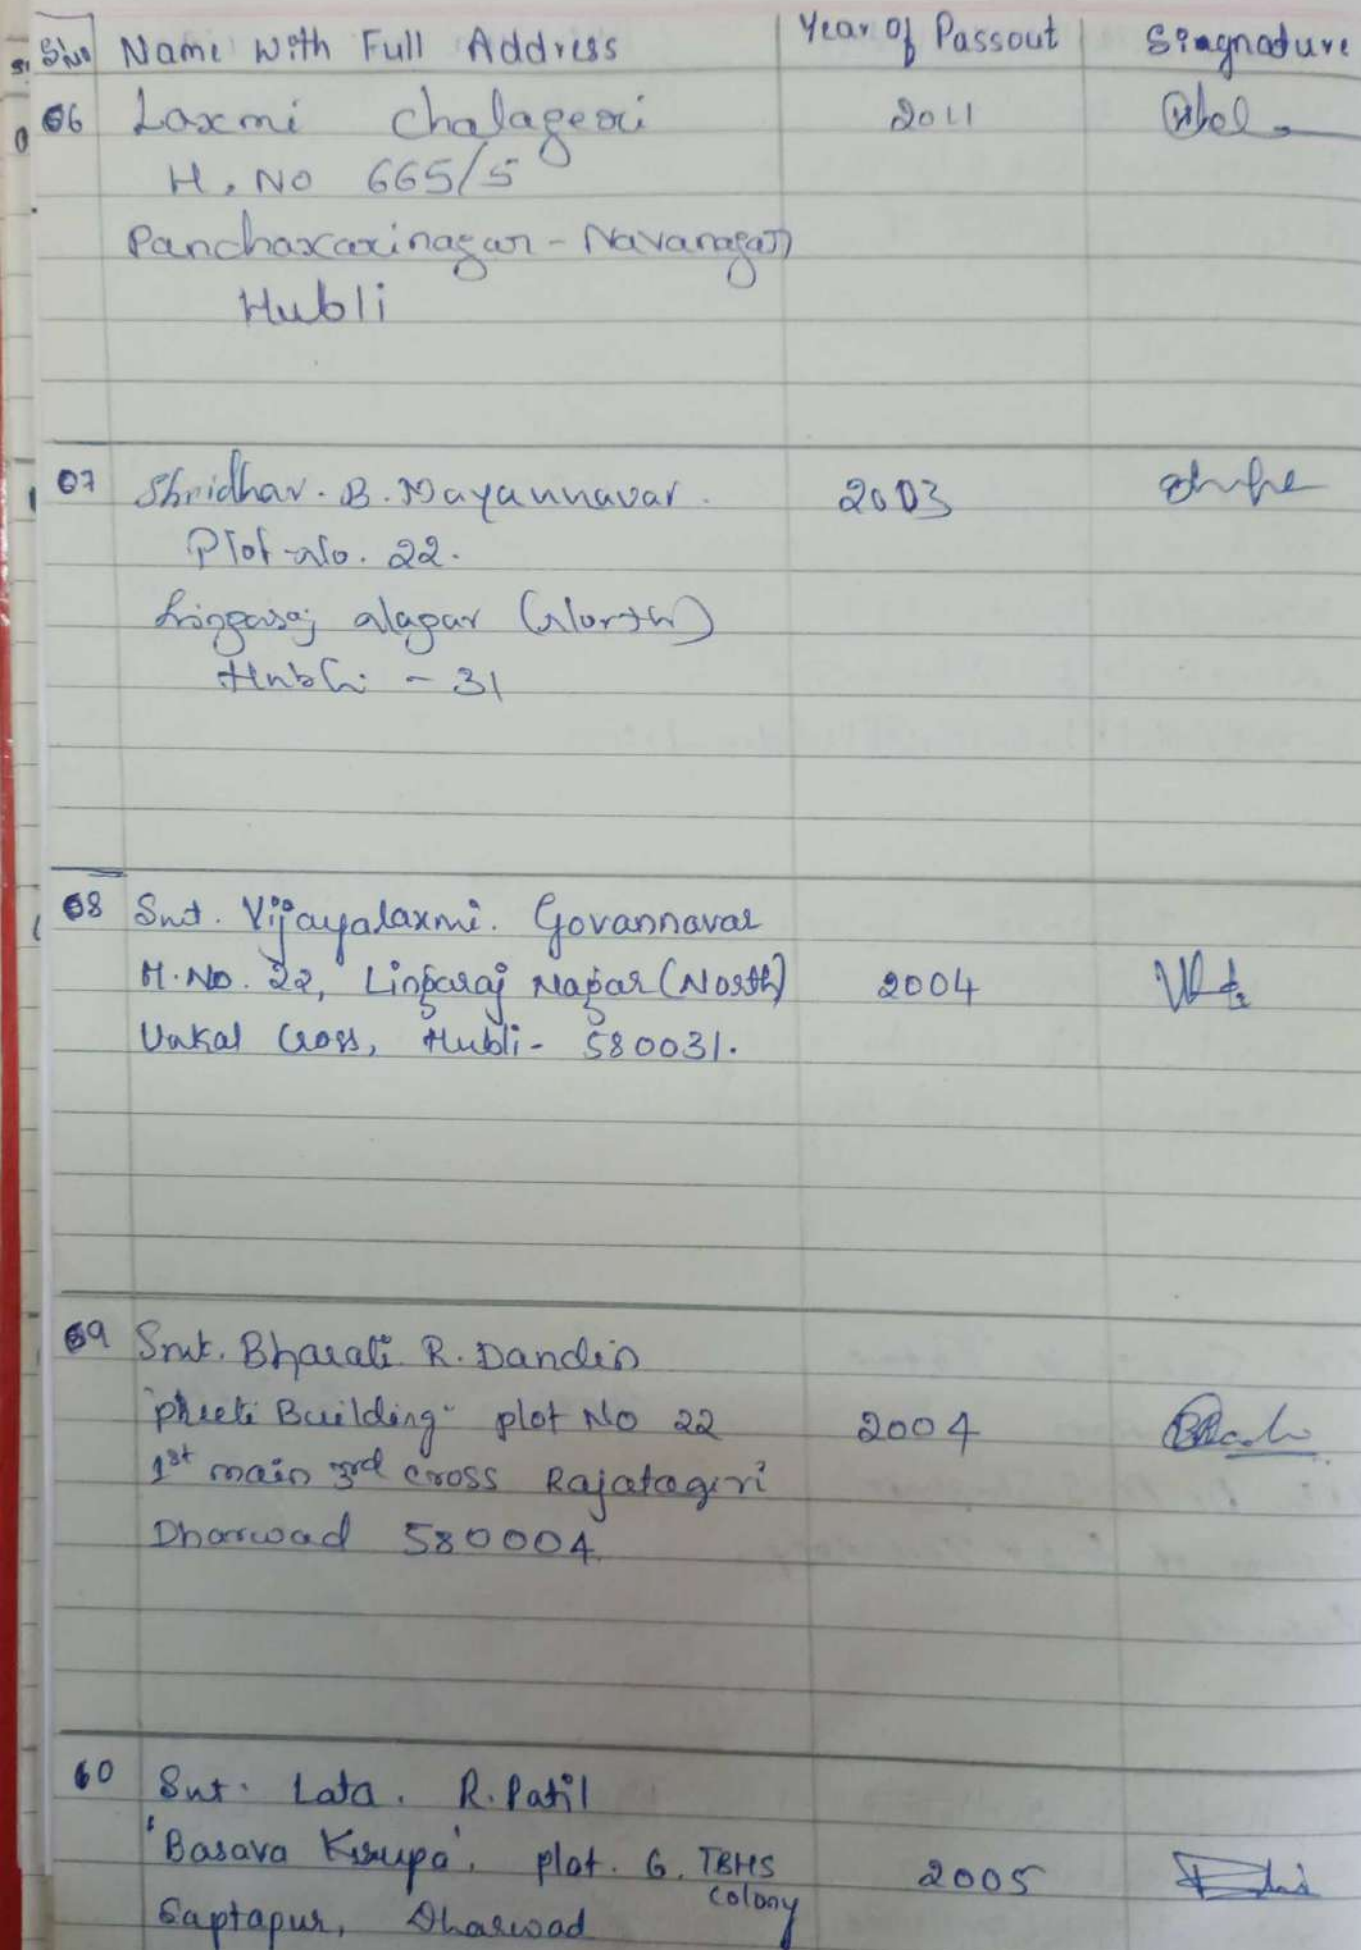 Sl.No Name with Full Address Year of Passout Siagnature
06 Laxmi Chalageri 2011
H. No 665/5
Panchaxarinagar - Navanagar
Hubli
07 Shridhar. B. Mayannavar. 2003
Plot No. 22.
Lingaraj Nagar (North)
Hubli - 31
08 Smt. Vijayalaxmi. Govannavar
H. No. 22, Lingaraj Nagar (North) 2004
Unkal Cross, Hubli - 580031.
09 Smt. Bharati R. Dandin
"Building" plot No 22 2004
1st main 3rd cross Rajatagiri
Dharwad 580004.
60 Smt. Lata. R. Patil
'Basava Krupa'. plot. 6. TBHS 2005
Colony
Saptapur, Dharwad